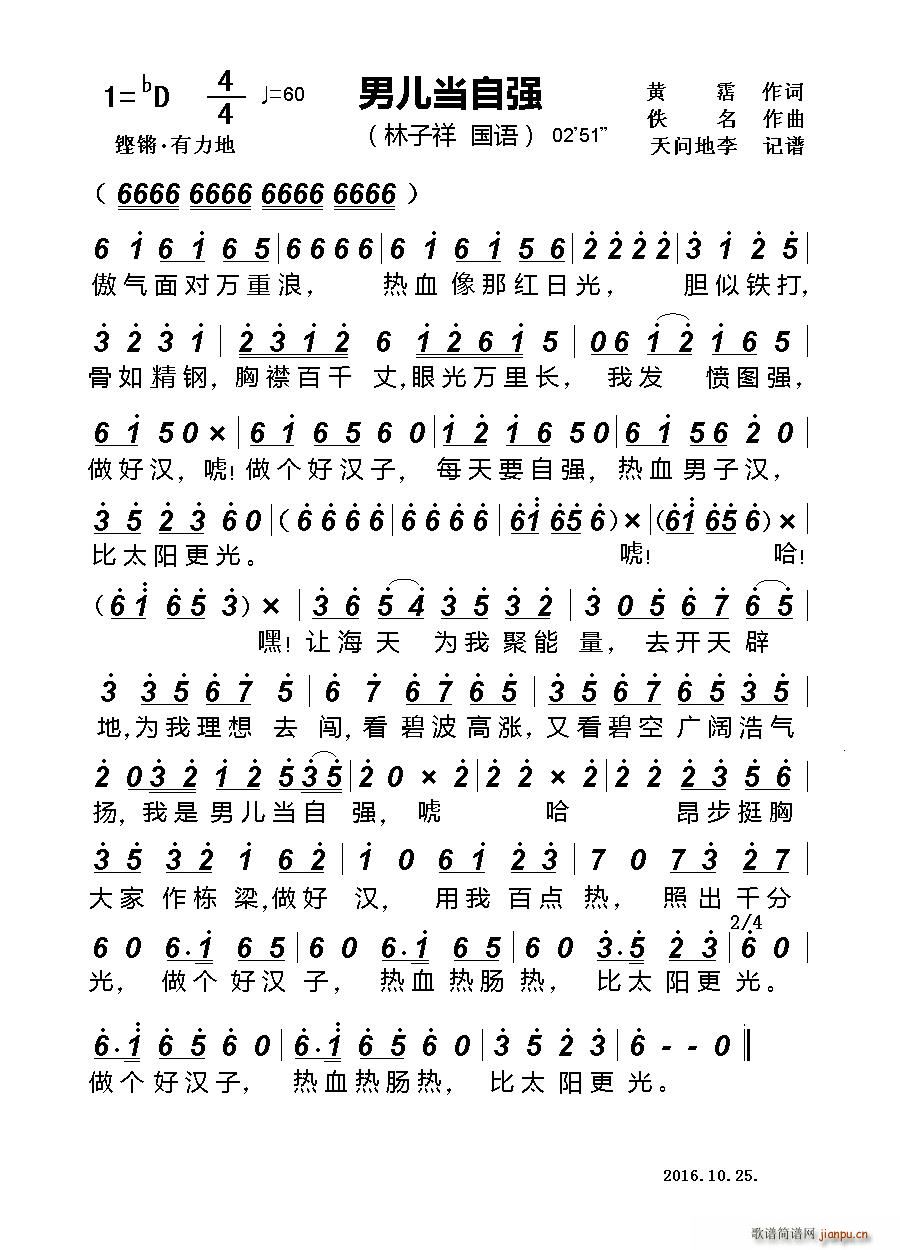 1=ᵇD 4/4 ♩=60 男儿当自强 黄霑 作词
（林子祥 国语）02'51" 佚名 作曲
铿锵·有力地 天问地李 记谱
（6666 6666 6666 6666）
6 1 6 1 6 5 | 6 6 6 6 | 6 1 6 1 5 6 | 2 2 2 2 | 3 1 2 5 |
傲气面对万重浪， 热血像那红日光， 胆似铁打，
3 2 3 1 | 2 3 1 2 6 1 2 6 1 5 | 0 6 1 2 1 6 5 |
骨如精钢，胸襟百千丈，眼光万里长， 我发愤图强，
6 1 5 0 × | 6 1 6 5 6 0 | 1 2 1 6 5 0 | 6 1 5 6 2 0 |
做好汉，唬！做个好汉子，每天要自强，热血男子汉，
3 5 2 3 6 0 |（6 6 6 6 | 6 6 6 6 | 6 1 6 5 6）× |（6 1 6 5 6）× |
比太阳更光。 唬！ 哈！
（6 1 6 5 3）× | 3 6 5 4 3 5 3 2 | 3 0 5 6 7 6 5 |
嘿！让海天 为我聚能量，去开天辟
3 3 5 6 7 5 | 6 7 6 7 6 5 | 3 5 6 7 6 5 3 5 |
地，为我理想去闯，看碧波高涨，又看碧空广阔浩气
2 0 3 2 1 2 5 3 5 | 2 0 × 2 | 2 2 × 2 | 2 2 2 3 5 6 |
扬，我是男儿当自强，唬 哈 昂步挺胸
3 5 3 2 1 6 2 | 1 0 6 1 2 3 | 7 0 7 3 2 7 |
大家作栋梁，做好汉， 用我百点热， 照出千分
2/4
6 0 6· 1 6 5 | 6 0 6· 1 6 5 | 6 0 3· 5 2 3 | 6 0 |
光， 做个好汉子， 热血热肠热， 比太阳更光。
6· 1 6 5 6 0 | 6· 1 6 5 6 0 | 3 5 2 3 | 6 - - 0 ‖
做个好汉子， 热血热肠热， 比太阳更光。
2016.10.25.
歌谱简谱网 jianpu.cn